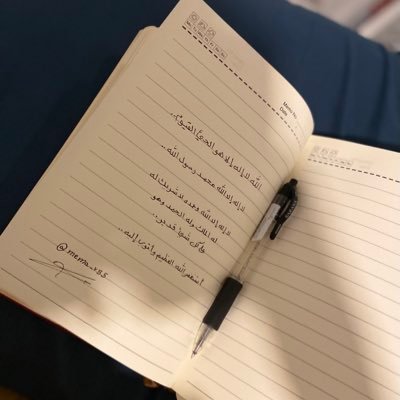 Memo No.
Date
الله لا إله إلا هو الحي القيوم..
لا إله إلا الله محمد رسول الله..
لا إله إلا الله وحده لا شريك له
له الملك وله الحمد وهو
على كل شيء قدير..
أستغفر الله العظيم وأتوب إليه..